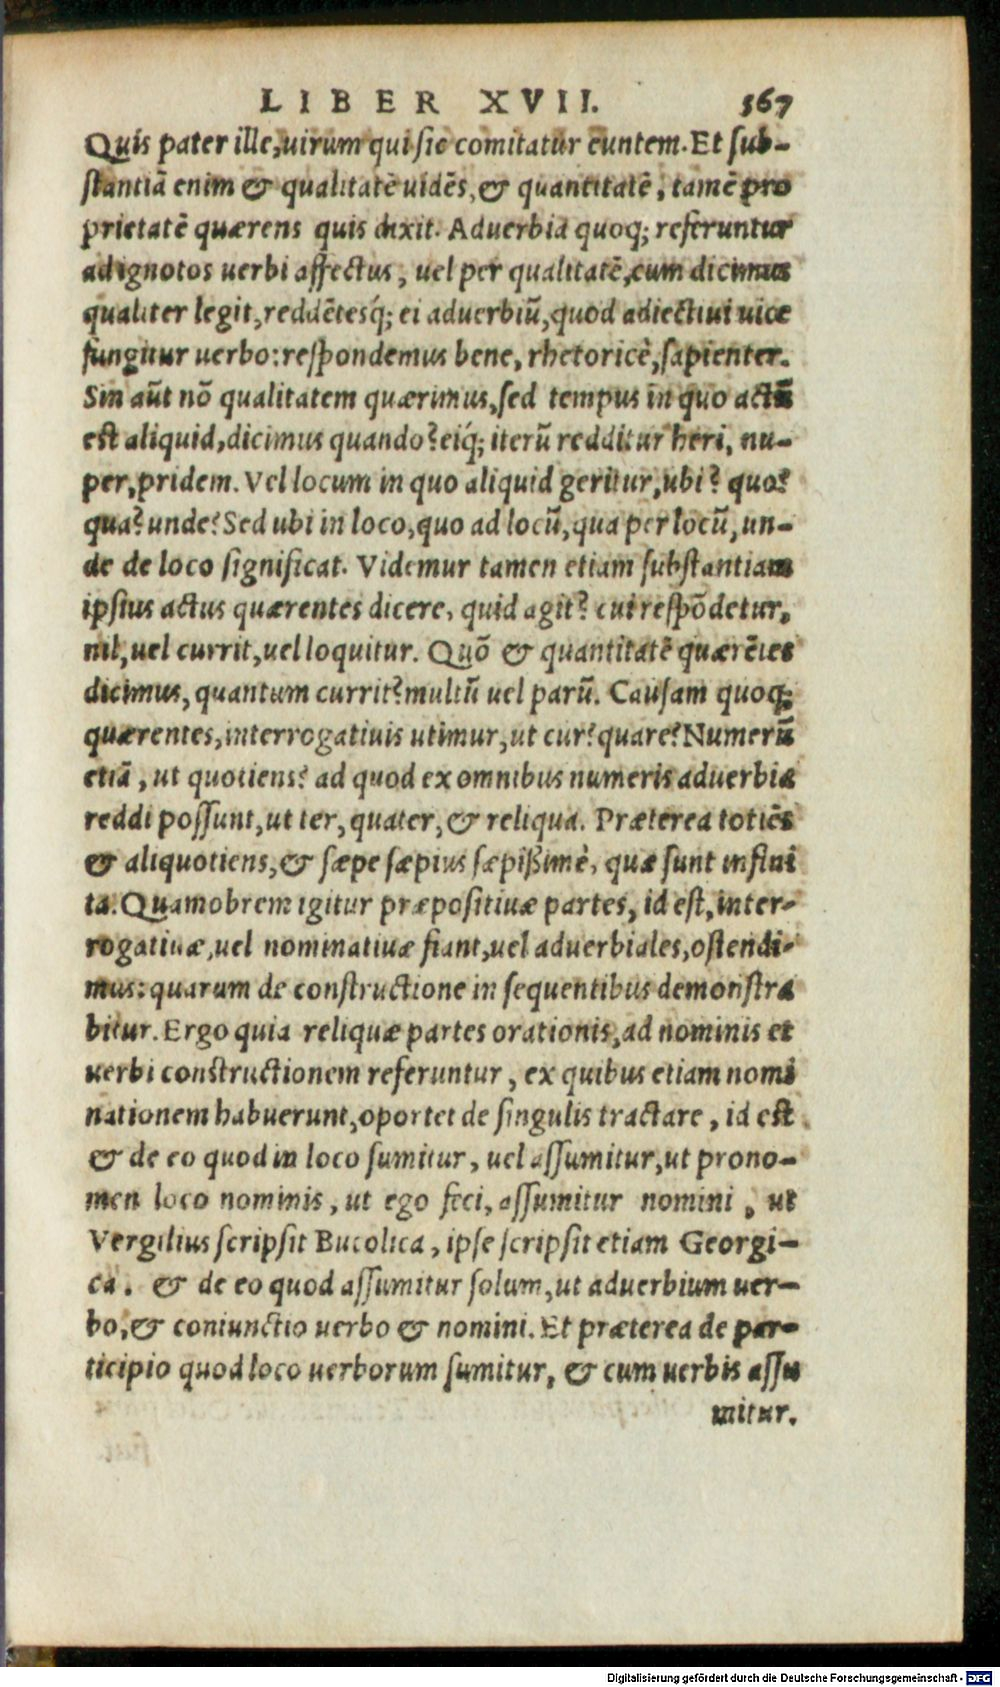 LIBER XVII. 367
Quis pater ille, uirum qui sic comitatur euntem. Et sub-
stantiā enim & qualitatē uidēs, & quantitatē, tamē pro
prietatē quærens quis dixit. Aduerbia quoq; referuntur
ad ignotos uerbi affectus, uel per qualitatē, cum dicimus
qualiter legit, reddētesq́; ei aduerbiū, quod adiectiui uice
fungitur uerbo: respondemus bene, rhetoricè, sapienter.
Sin aūt nō qualitatem quærimus, sed tempus in quo actū
est aliquid, dicimus quando? eiq́; iterū redditur heri, nu-
per, pridem. Vel locum in quo aliquid geritur, ubi? quo?
qua? unde? Sed ubi in loco, quo ad locū, qua per locū, un-
de de loco significat. Videmur tamen etiam substantiam
ipsius actus quærentes dicere, quid agit? cui respōdetur,
nil, uel currit, uel loquitur. Quō & quantitatē quærētes
dicimus, quantum currit? multū uel parū. Causam quoq;
quærentes, interrogatiuis utimur, ut cur? quare? Numerū
etiā, ut quotiens? ad quod ex omnibus numeris aduerbia
reddi possunt, ut ter, quater, & reliqua. Præterea totiēs
& aliquotiens, & sæpe sæpius sæpißimè, quæ sunt infini
ta. Quamobrem igitur præpositiuæ partes, id est, inter-
rogatiuæ, uel nominatiuæ fiant, uel aduerbiales, ostendi-
mus: quarum de constructione in sequentibus demonstra
bitur. Ergo quia reliquæ partes orationis, ad nominis et
uerbi constructionem referuntur, ex quibus etiam nomi
nationem habuerunt, oportet de singulis tractare, id est
& de eo quod in loco sumitur, uel assumitur, ut prono-
men loco nominis, ut ego feci, assumitur nomini, ut
Vergilius scripsit Bucolica, ipse scripsit etiam Georgi-
ca. & de eo quod assumitur solum, ut aduerbium uer-
bo, & coniunctio uerbo & nomini. Et præterea de par-
ticipio quod loco uerborum sumitur, & cum uerbis assu
mitur.
Digitalisierung gefördert durch die Deutsche Forschungsgemeinschaft - DFG